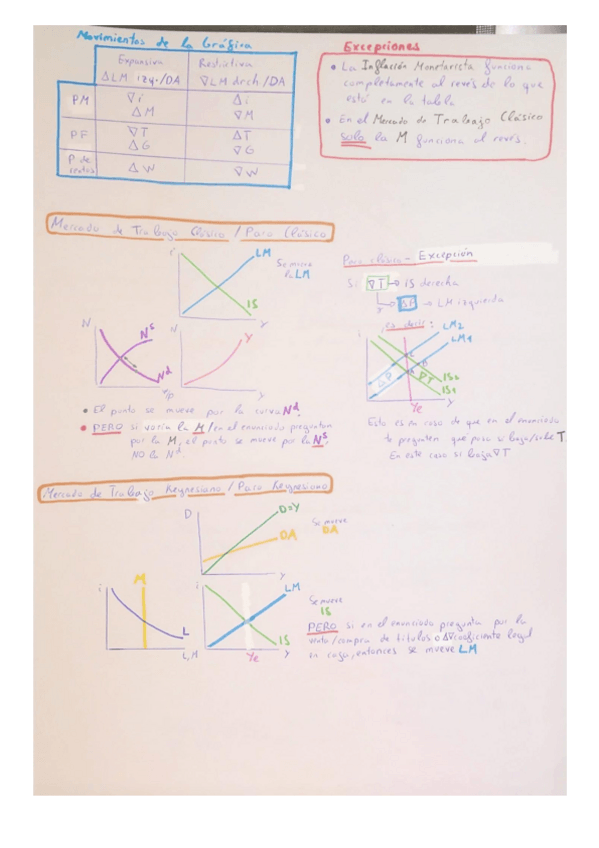 Movimientos de la Gráfica
Expansiva
Δ LM izq./DA
Restrictiva
∇ LM drch/DA
PM
∇i
ΔM
Δi
∇M
PF
∇T
ΔG
ΔT
∇G
P de
rentas
ΔW
∇W
Excepciones
• La Inflación Monetarista funciona
completamente al revés de lo que
está en la tabla
• En el Mercado de Trabajo Clásico
solo la M funciona al revés.
Mercado de Trabajo Clásico / Paro Clásico
i
LM
IS
Y
Se mueve
la LM
N
Nˢ
Nᵈ
N
Y
Y
• El punto se mueve por la curva Nᵈ.
• PERO si varía la M/en el enunciado preguntan
por la M, el punto se mueve por la Nˢ,
NO la Nᵈ.
Paro clásico - Excepción
Si ∇T → IS derecha
Y ΔP → LM izquierda
¡Es decir:
i
LM2
LM1
ΔP
∇T
IS2
IS1
Ye
Esto es en caso de que en el enunciado
te pregunten qué pasa si baja/sube T.
En este caso si baja ∇T
Mercado de Trabajo Keynesiano / Paro Keynesiano
D
D=Y
DA
Y
Se mueve
DA
i
M
L
L,M
i
LM
IS
Ye
Y
Se mueve
IS
PERO si en el enunciado pregunta por la
venta/compra de títulos o Δ∇ coeficiente legal
en caja, entonces se mueve LM